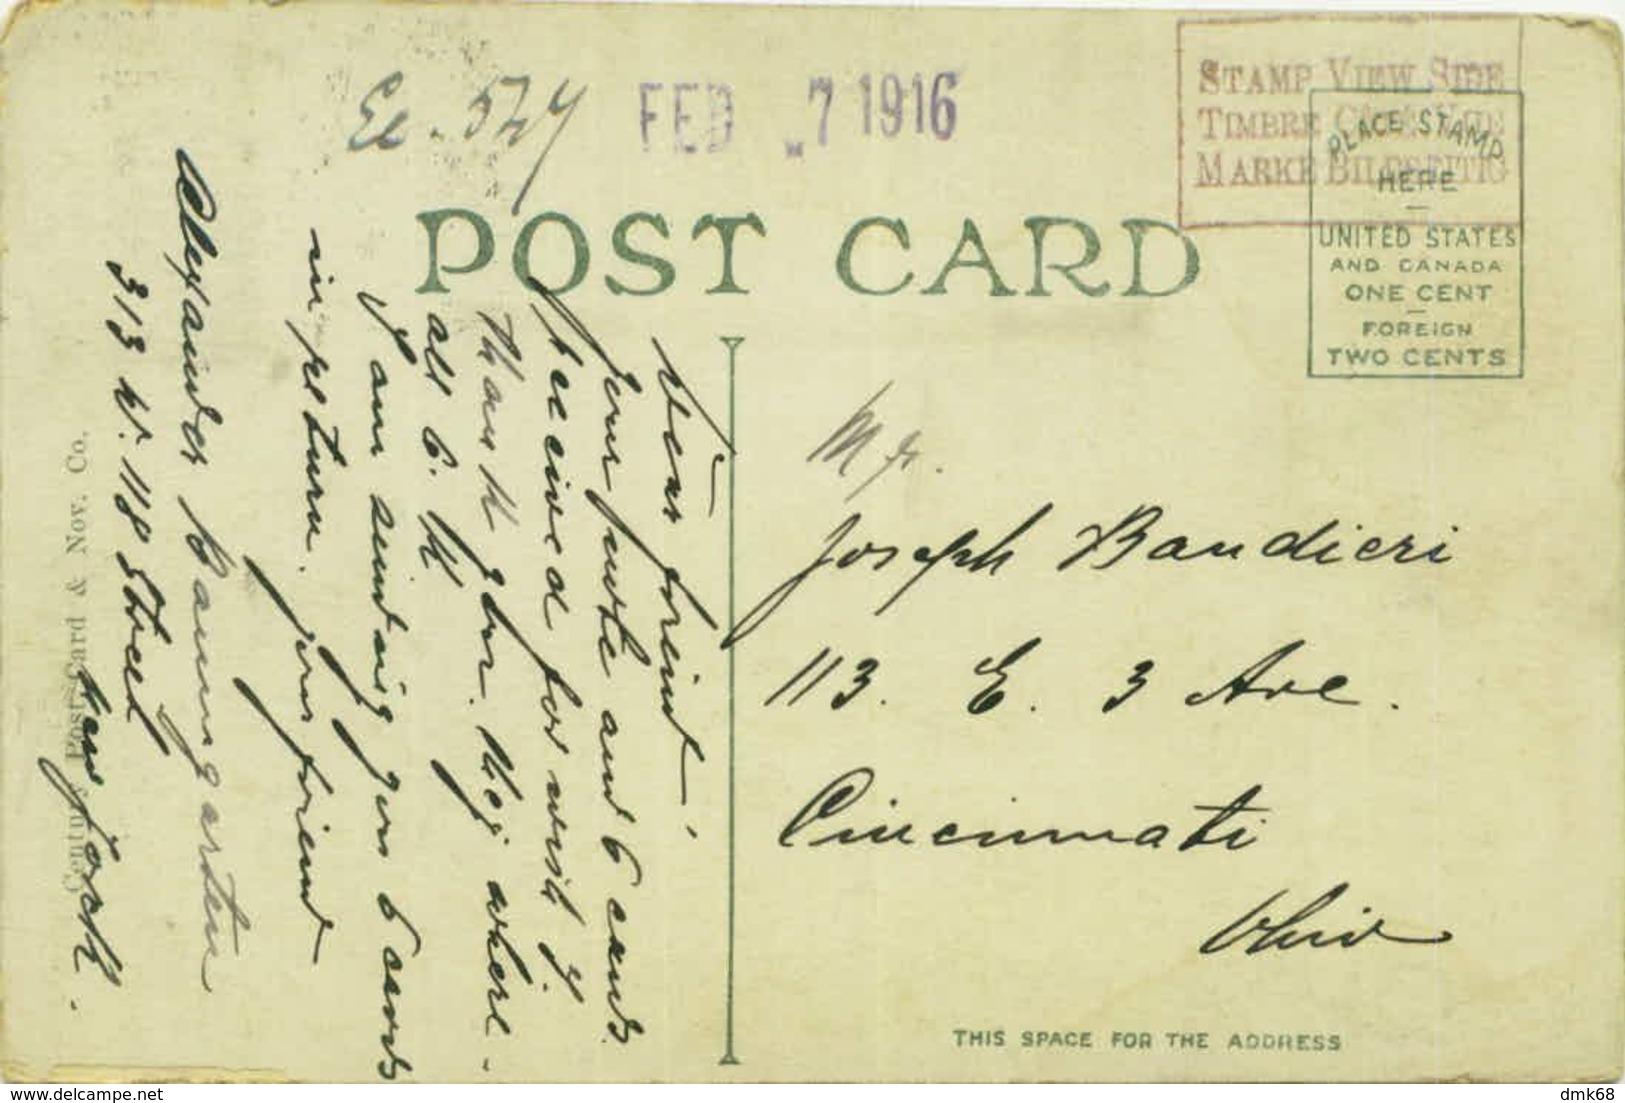 Ex. 524
FEB 7 1916
STAMP VIEW SIDE
TIMBRE CÔTÉ VUE
MARKE BILDSEITIG
PLACE STAMP
HERE
UNITED STATES
AND CANADA
ONE CENT
FOREIGN
TWO CENTS
POST CARD
Dear freind!
your purke and 6 cards
received for wish J.
thank you. They where
all 6. K
I am sending you 6 cards
in return.
your friend
Alexander Baumgarten
313 W. 118 Street
New Jorck.
Century Post Card & Nov. Co.
Mr.
Joseph Bandieri
113. E. 3 Ave.
Cincinnati
Ohio
THIS SPACE FOR THE ADDRESS
https://www.delcampe.net
dmk68